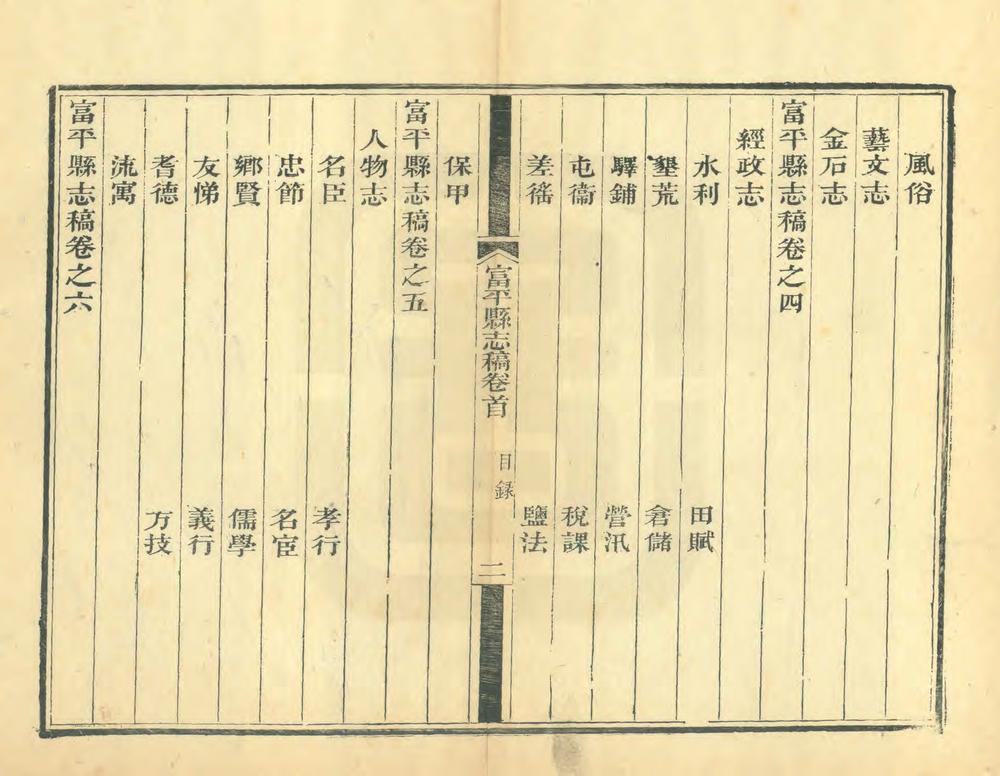 風俗
藝文志
金石志
富平縣志稿卷之四
經政志
水利 田賦
墾荒 倉儲
驛鋪 營汛
屯衞 稅課
差徭 鹽法
富平縣志稿卷首 目錄 二
保甲
富平縣志稿卷之五
人物志
名臣 孝行
忠節 名宦
鄉賢 儒學
友悌 義行
耆德 方技
流寓
富平縣志稿卷之六